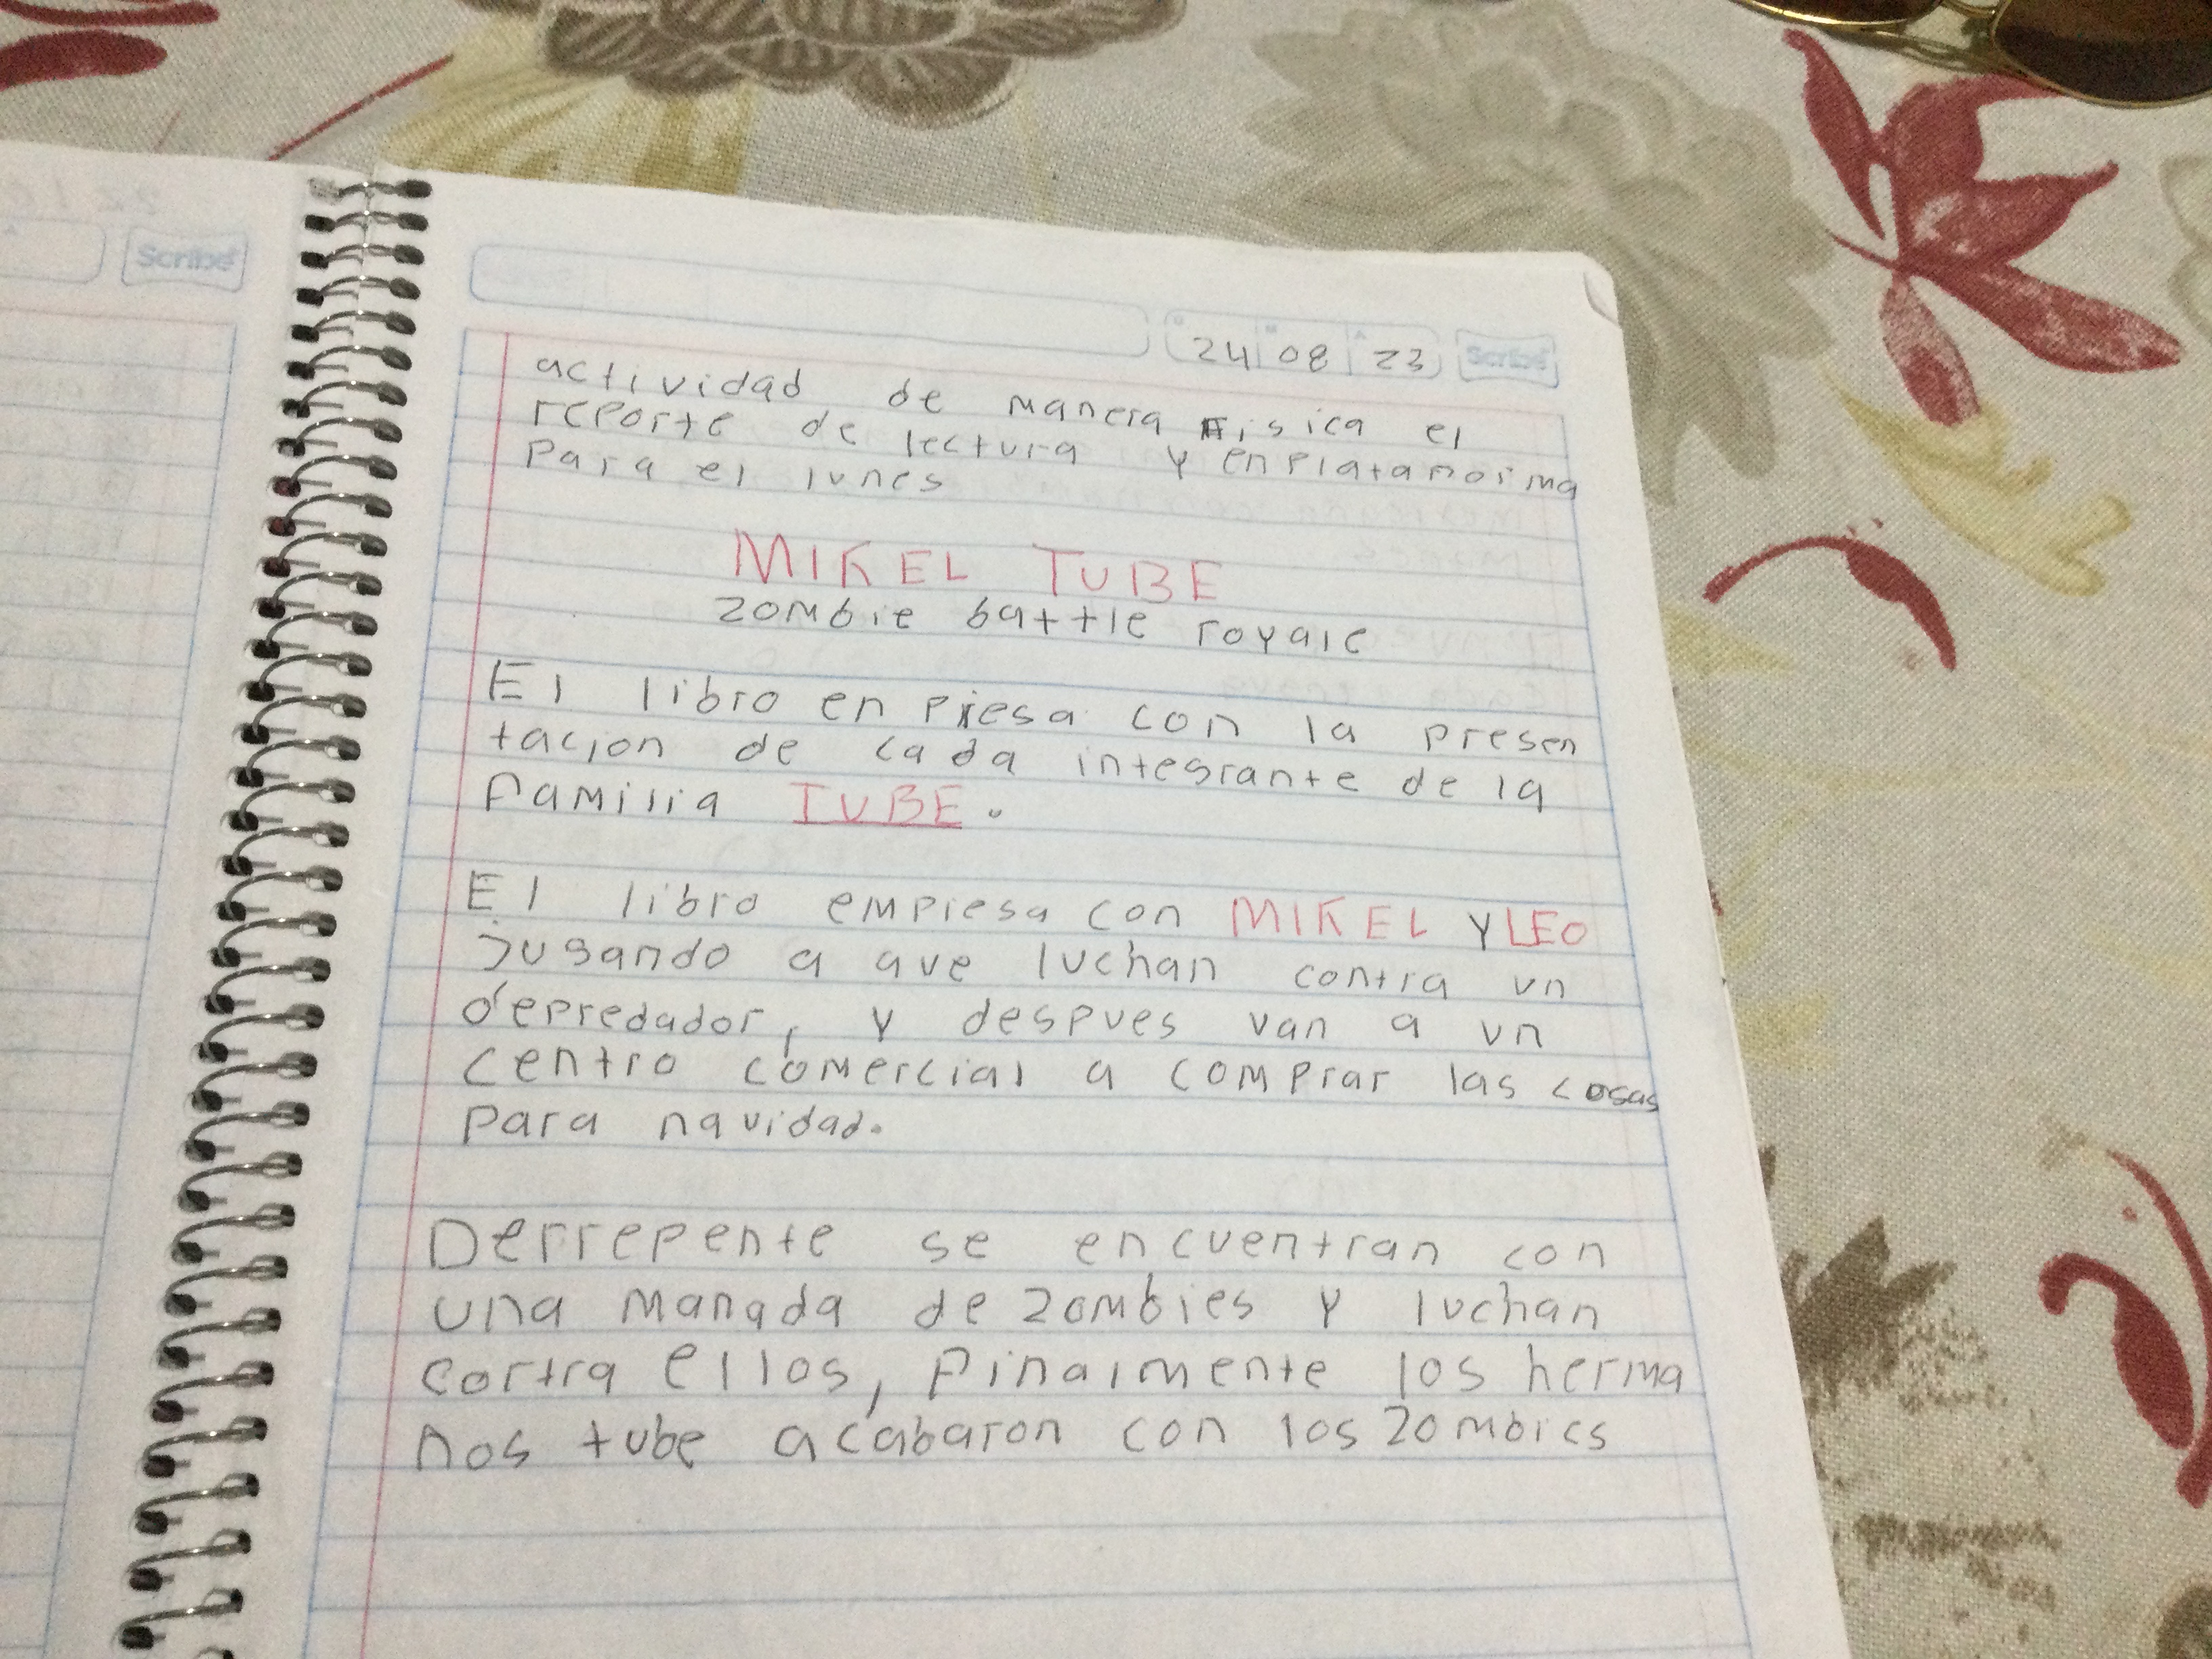 Scribe
24 08 23 Scribe
actividad de manera Fisica el
reporte de lectura y enplataforma
Para el lunes
MIKEL TUBE
zombie battle royale
El libro en piesa con la presen
tacion de cada integrante de la
familia TUBE.
El libro empiesa con MIKEL Y LEO
jugando a que luchan contra un
depredador, y despues van a un
centro comercial a comprar las cosas
para navidad.
Derrepente se encuentran con
una manada de zombies y luchan
contra ellos, finalmente los herma
nos tube acabaron con los zombies